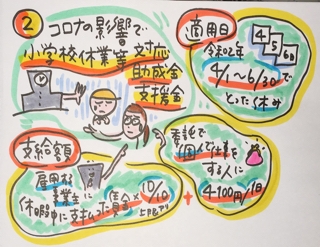 ②
コロナの影響で
小学校休業等対応
助成金
支援金
適用日
4 5 6
令和02年
4/1〜6/30で
とった休み
支給額
雇用校
事業主に
休暇中に支払った賃金×10/10
上限あり
+
委託で
個人で仕事を
する人に
4100円/日